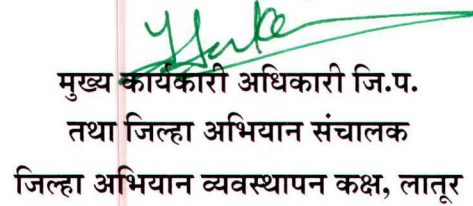 मुख्य कार्यकारी अधिकारी जि.प.
तथा जिल्हा अभियान संचालक
जिल्हा अभियान व्यवस्थापन कक्ष, लातूर